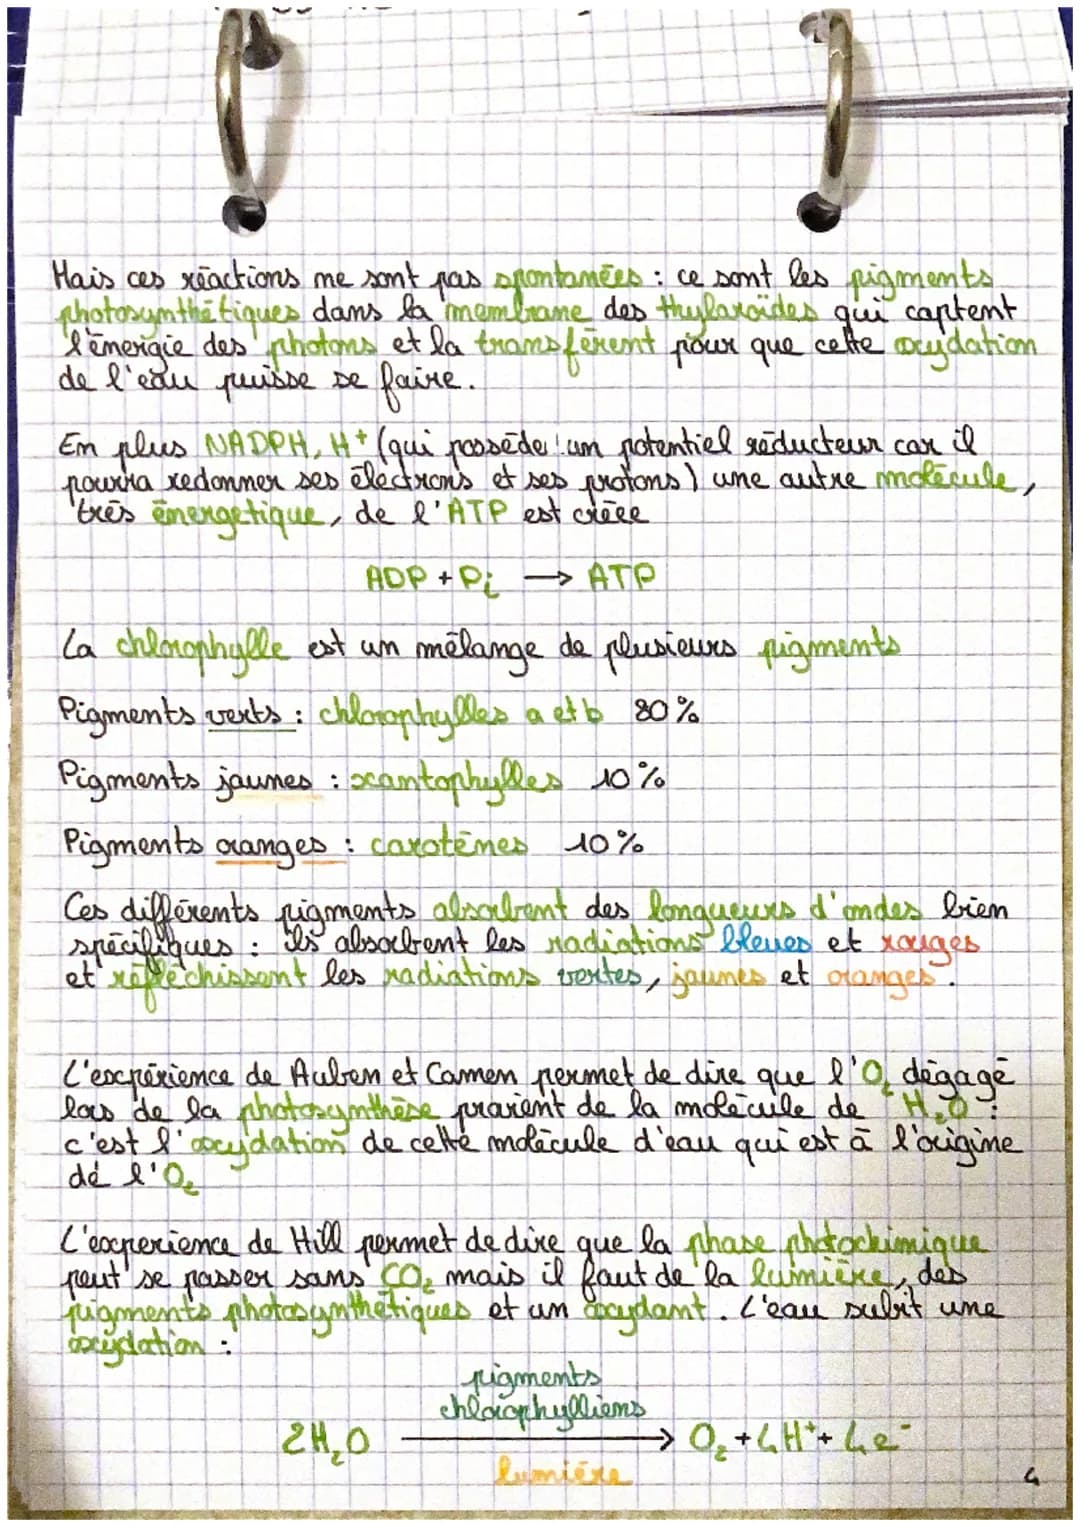 Mais ces réactions ne sont pas spontanées : ce sont les pigments
photosynthétiques dans la membrane des thylaroïdes qui captent
l'énergie des photons et la transfèrent pour que cette oxydation
de l'eau puisse se faire.
En plus NADPH, H⁺ (qui possède un potentiel réducteur car il
pourra redonner ses électrons et ses protons) une autre molécule,
très énergetique, de l'ATP est créée
ADP + Pi → ATP
La chlorophylle est un mélange de plusieurs pigments
Pigments verts : chlorophylles a et b 80 %
Pigments jaunes : xantophylles 10 %
Pigments oranges : carotènes 10 %
Ces différents pigments absorbent des longueurs d'ondes bien
spécifiques : ils absorbent les radiations bleues et rouges
et réfléchissent les radiations vertes, jaunes et oranges.
L'expérience de Auben et Camen permet de dire que l'O₂ dégagé
lors de la photosynthèse provient de la molécule de H₂O :
c'est l'oxydation de cette molécule d'eau qui est à l'origine
de l'O₂
L'experience de Hill permet de dire que la phase photochimique
peut se passer sans CO₂ mais il faut de la lumière, des
pigments photosynthétiques et un oxydant. L'eau subit une
oxydation :
pigments
chlorophylliens
2H₂O → O₂ + 4H⁺ + 4e⁻
lumière
4